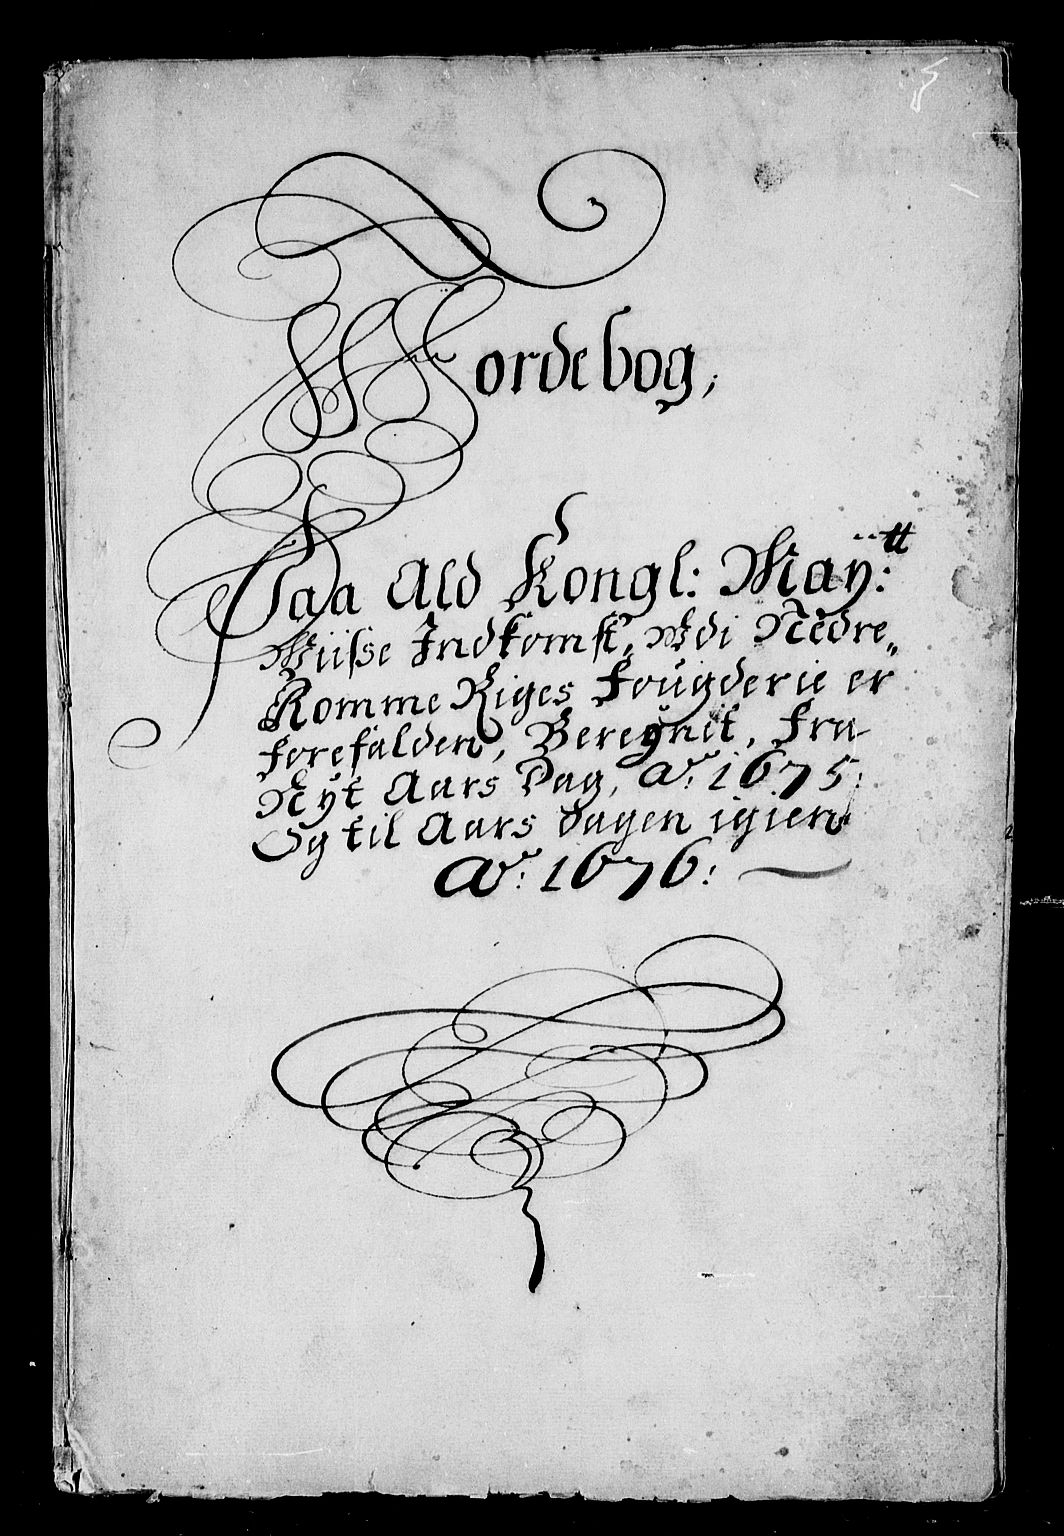 Wordebog,
Paa Ald Kongl: May:tt
Wiisse Indkomst, Wdi Nedre„
Romme Riges Fougderie er
forefalden, Beregnit, Fra
Nyt Aars Dag, Ao: 1675:
Og til Aars dagen igien
Ao: 1676: